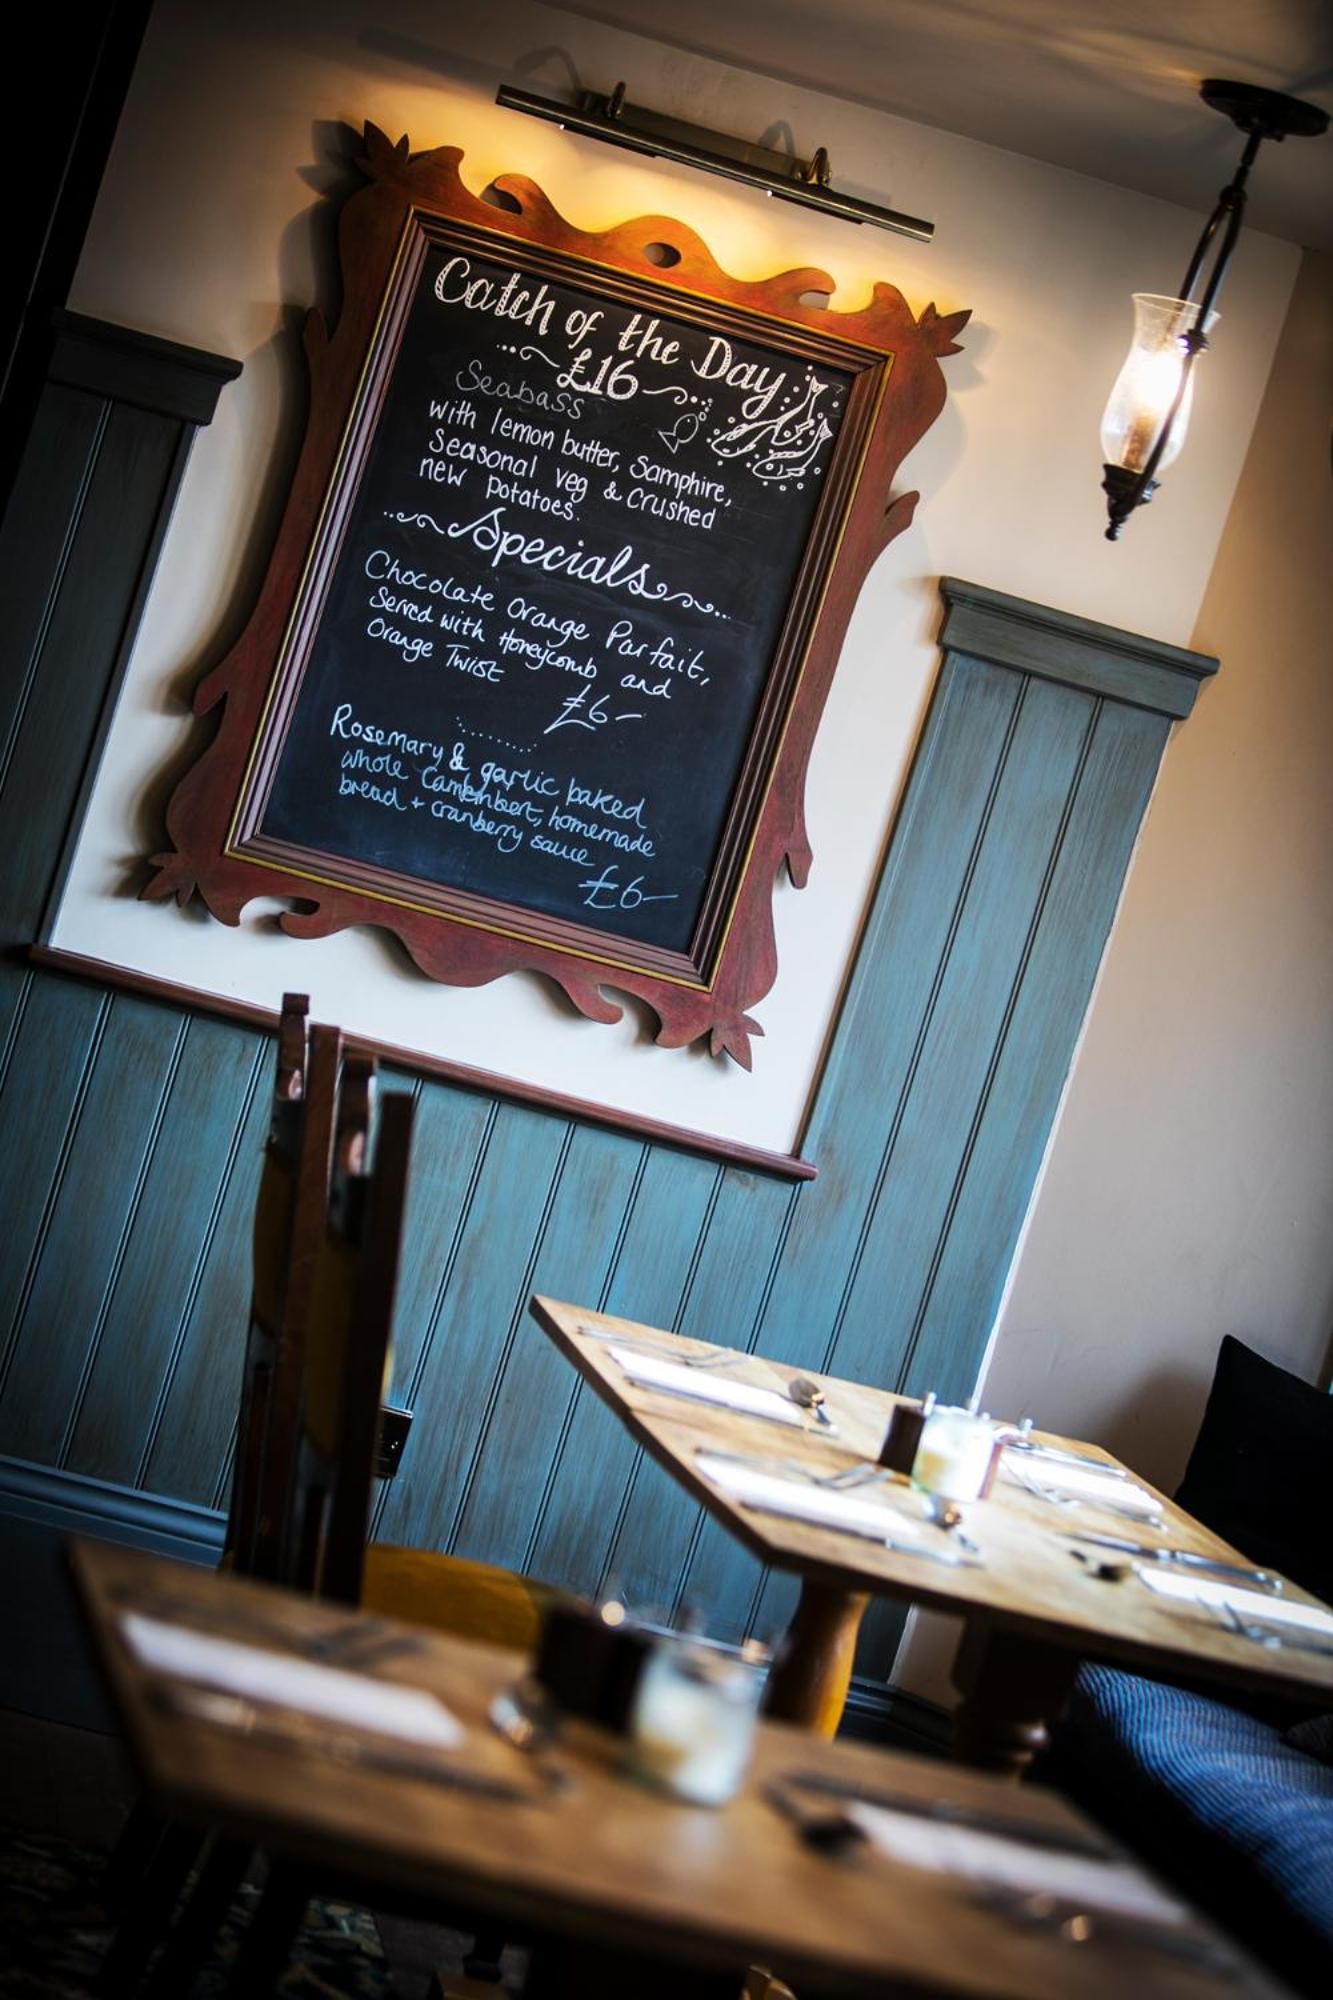 Catch of the Day
£16
Seabass
with lemon butter, Samphire,
Seasonal veg & Crushed
new potatoes.
Specials
Chocolate Orange Parfait,
Served with Honeycomb and
Orange Twist
£6-
Rosemary & garlic baked
whole Camembert, homemade
bread + cranberry sauce
£6-